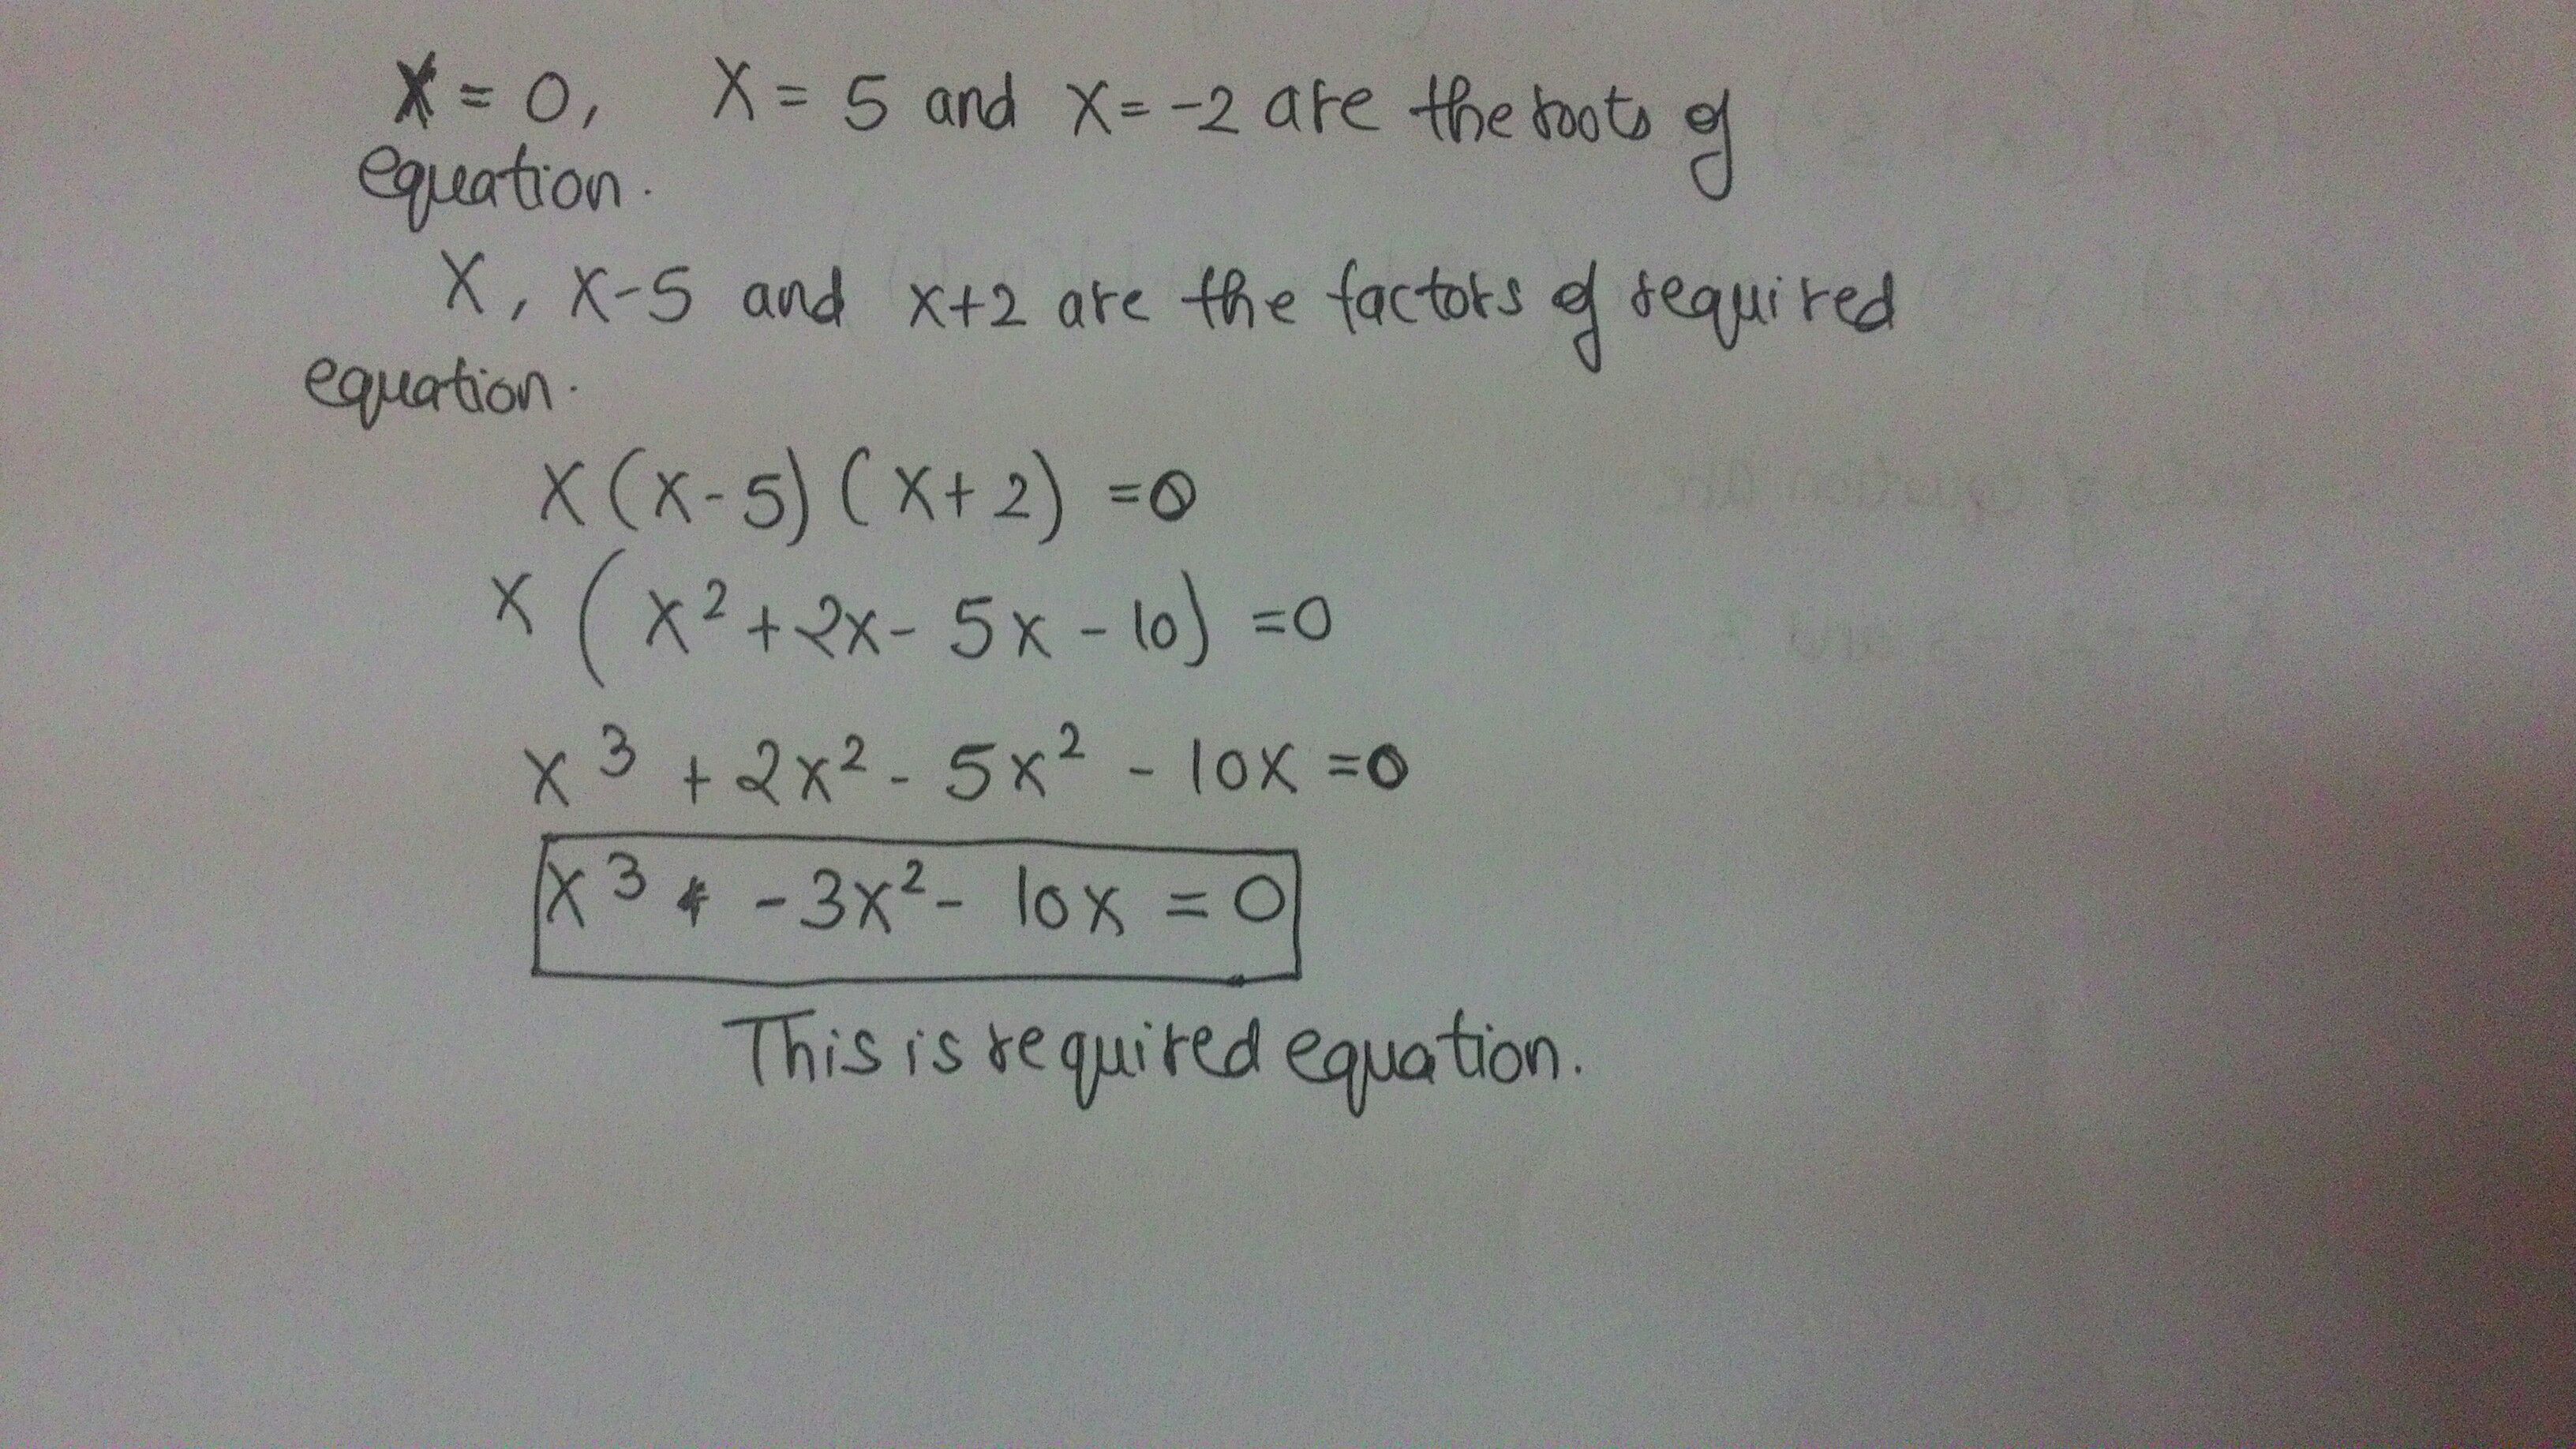 x = 0, x = 5 and x = -2 are the roots of
equation.
x, x-5 and x+2 are the factors of required
equation.
x(x-5)(x+2) =0
x(x²+2x-5x-10) =0
x³ +2x²-5x² -10x =0
x³ -3x²- 10x = 0
This is required equation.